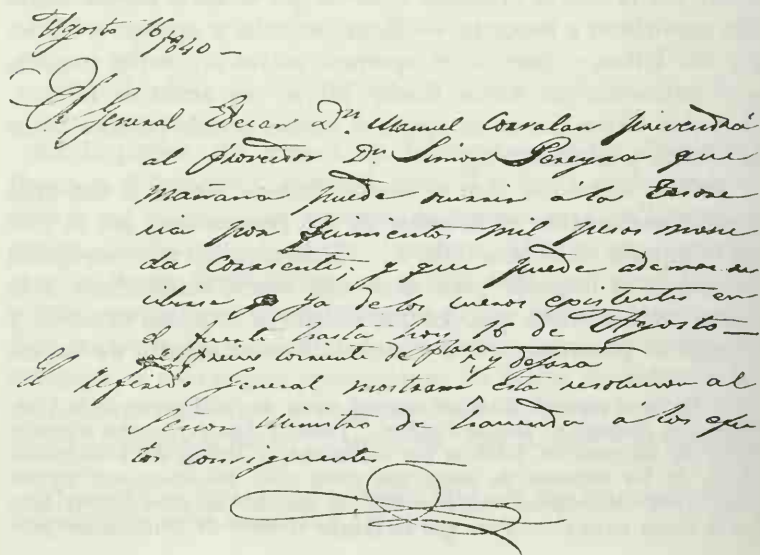 Agosto 16/1840 –
El General Edecan Dn. Manuel Corvalan prevendrá
al proveedor Dn. Simon Pereyra que
mañana puede ocurrir á la Tesore
ria por Quinientos mil pesos mone
da corriente; y que puede ademas re
cibirse ya de los cueros existentes en
el fuerte hasta hoy 16 de Agosto –
al precio corriente de plaza
El referido General mostrará esta resolucion al
y dejará
Señor Ministro de hacienda á los efec
tos consiguientes –